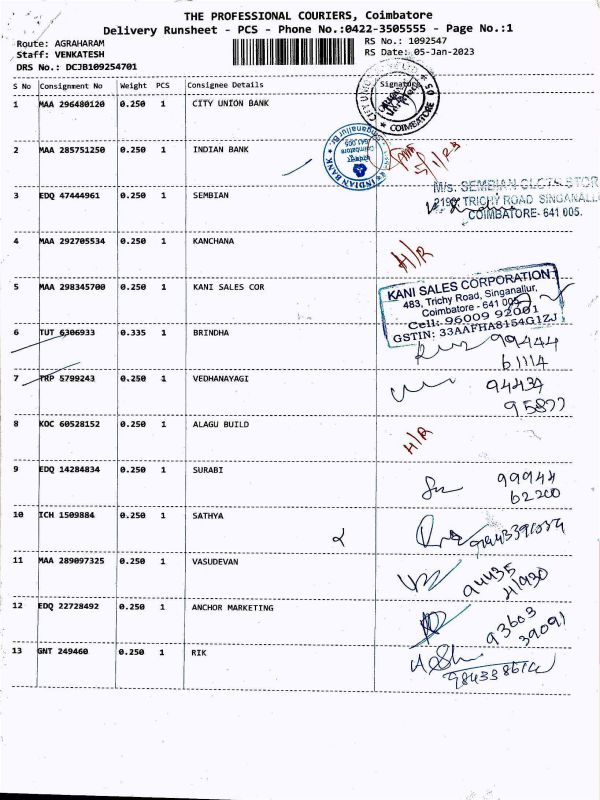 THE PROFESSIONAL COURIERS, Coimbatore
Delivery Runsheet - PCS - Phone No.:0422-3505555 - Page No.:1
Route: AGRAHARAM
RS No.: 1092547
Staff: VENKATESH
RS Date: 05-Jan-2023
DRS No.: DCJB109254701
S No Consignment No Weight PCS Consignee Details Signature
COIMBATORE
1 MAA 296480120 0.250 1 CITY UNION BANK
Singanallur Br.
Coimbatore
641 005
INDIAN BANK
2 MAA 285751250 0.250 1 INDIAN BANK 5/1/23
3 EDQ 47444961 0.250 1 SEMBIAN
TRICHY ROAD SINGANALL
COIMBATORE- 641 005.
4 MAA 292705534 0.250 1 KANCHANA H/R
5 MAA 298345700 0.250 1 KANI SALES COR
KANI SALES CORPORATION
483, Trichy Road, Singanallur,
Coimbatore - 641 005
Cell: 96009 92001
GSTIN: 33AAFHA8154G1ZJ
6 TUT 6306933 0.335 1 BRINDHA 99444
61114
7 TRP 5799243 0.250 1 VEDHANAYAGI 94434
95877
8 KOC 60528152 0.250 1 ALAGU BUILD H/R
9 EDQ 14284834 0.250 1 SURABI 99944
62200
10 ICH 1509884 0.250 1 SATHYA
11 MAA 289097325 0.250 1 VASUDEVAN 94435
41930
12 EDQ 22728492 0.250 1 ANCHOR MARKETING 93603
39091
13 GNT 249460 0.250 1 RIK